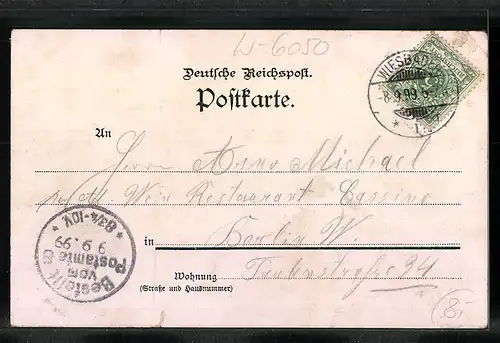 W-6050
Deutsche Reichspost.
Postkarte.
WIESBAD
8.9.99
An
Herrn Arno Michael
Wein Restaurant
in Berlin W.
Wohnung
(Straße und Hausnummer)
34
Bestellt
vom
Postamte
9.9.99
8¾-10V.
8,-